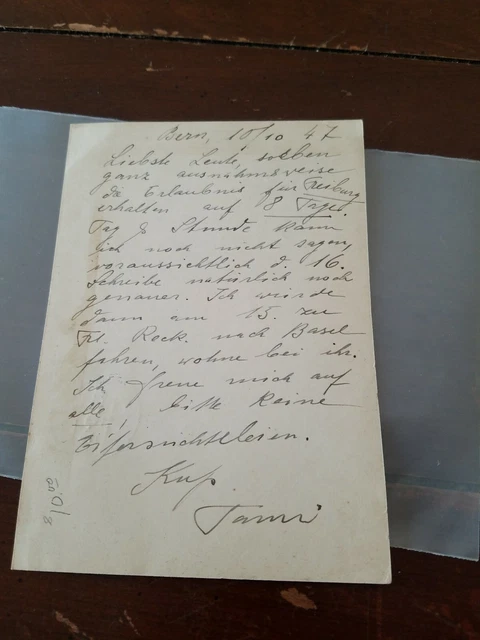 Bern, 10/10 47
Liebste Leute, soeben
ganz ausnahmsweise
die Erlaubnis für Freiburg
erhalten auf 8 Tage.
Tag & Stunde kann
ich noch nicht sagen,
voraussichtlich d. 16.
Schreibe natürlich noch
genauer. Ich würde
dann am 15. zu
Frl. Rock. nach Basel
fahren, wohne bei ihr.
Ich freue mich auf
alle, bitte keine
Eifersüchteleien.
Kuß.